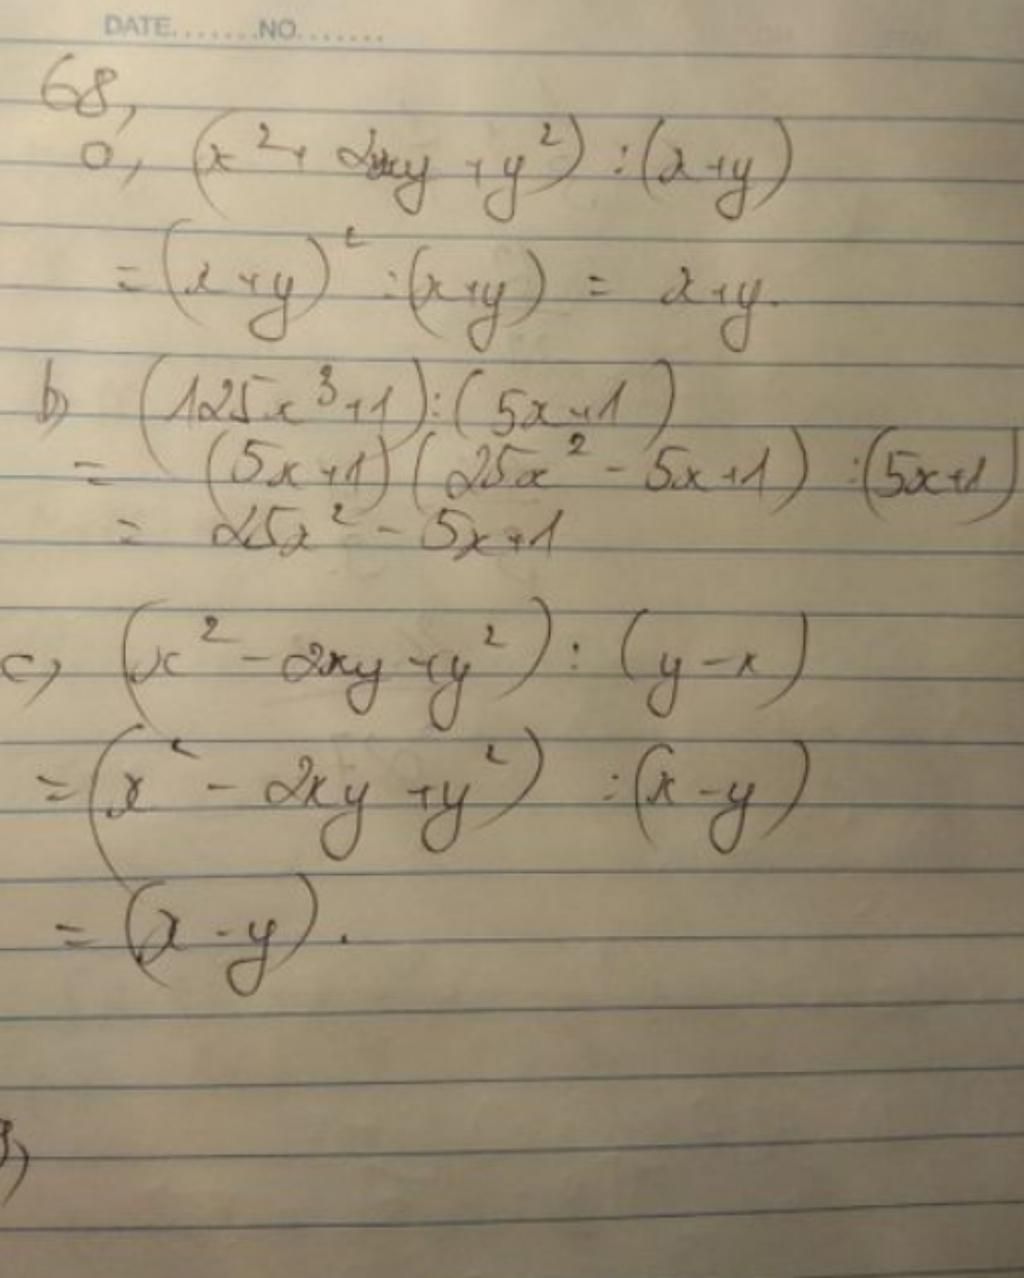 DATE.......NO.......
68,
a, (x² + 2xy + y²) : (x+y)
= (x+y)² : (x+y) = x+y.
b) (125x³+1) : (5x+1)
= (5x+1)(25x² - 5x+1) : (5x+1)
= 25x² - 5x+1
c, (x² - 2xy + y²) : (y - x)
= (x² - 2xy + y²) : (x - y)
= (x - y).